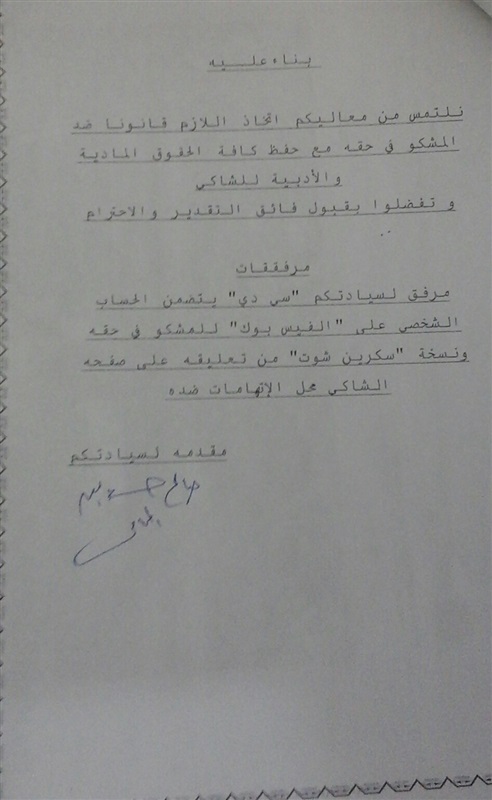 بناء علـــيه
نلتمس من معاليكم اتخاذ اللازم قانونا ضد
المشكو في حقه مع حفظ كافة الحقوق المادية
والأدبية للشاكي
وتفضلوا بقبول فائق التقدير والاحترام
مرفقات
مرفق لسيادتكم "سي دي" يتضمن الحساب
الشخصي على "الفيس بوك" للمشكو في حقه
ونسخة "سكرين شوت" من تعليقه على صفحه
الشاكي محل الإتهامات ضده
مقدمه لسيادتكم
صالح